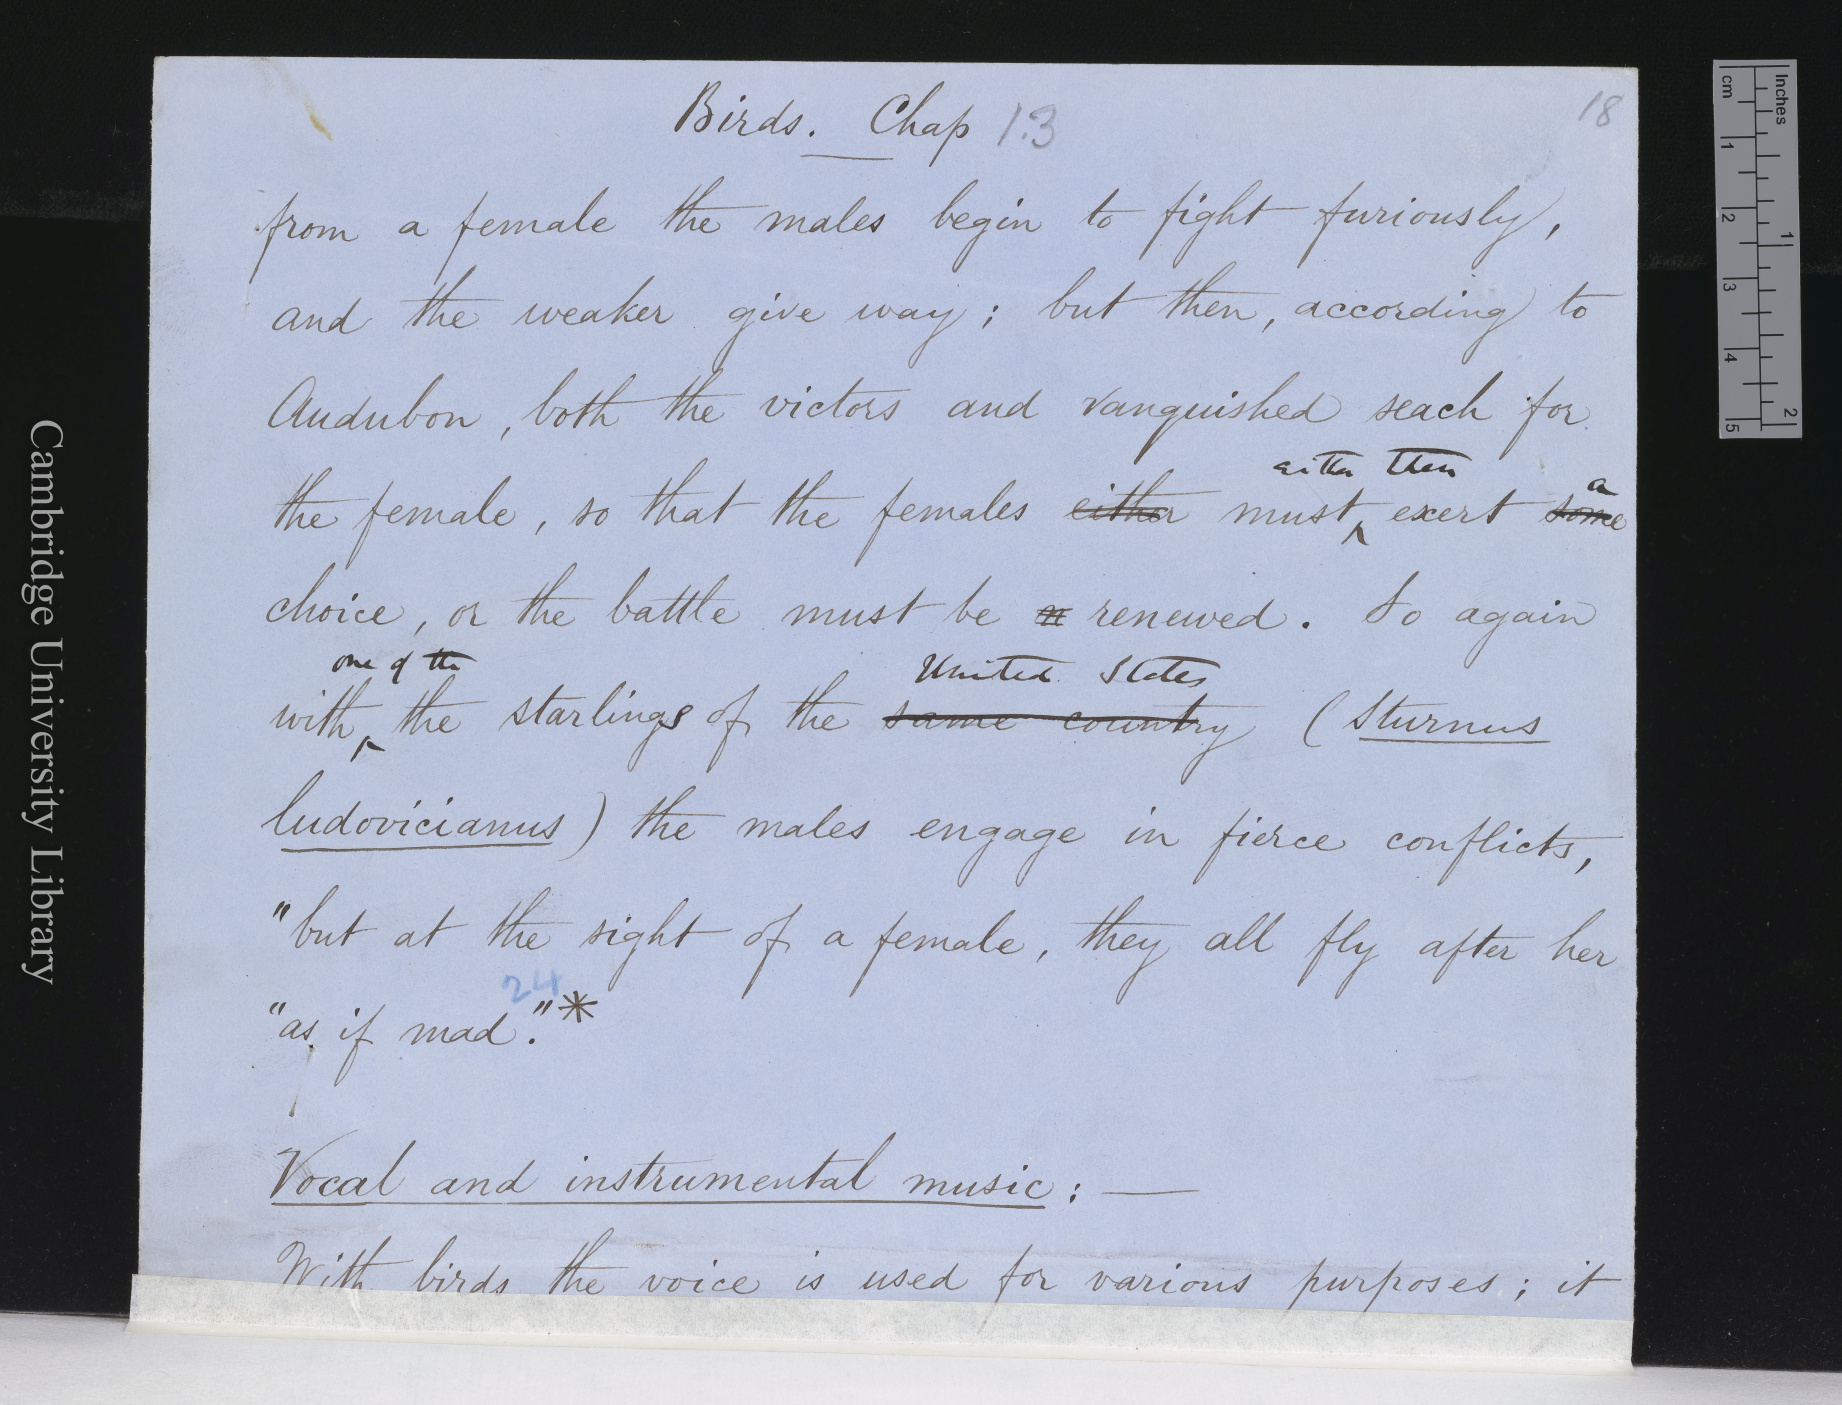 Birds. Chap 13
18
from a female the males begin to fight furiously,
and the weaker give way; but then, according to
Audubon, both the victors and vanquished seach for
either then a
the female, so that the females either must, exert some
choice, or the battle must be n renewed. So again
one of the United States
with, the starlings of the same country (Sturnus
ludovicianus) the males engage in fierce conflicts,
"but at the sight of a female, they all fly after her
24
"as if mad."*
Vocal and instrumental music: —
With birds the voice is used for various purposes; it
Cambridge University Library
cm 1 2 3 4 5
Inches 1 2